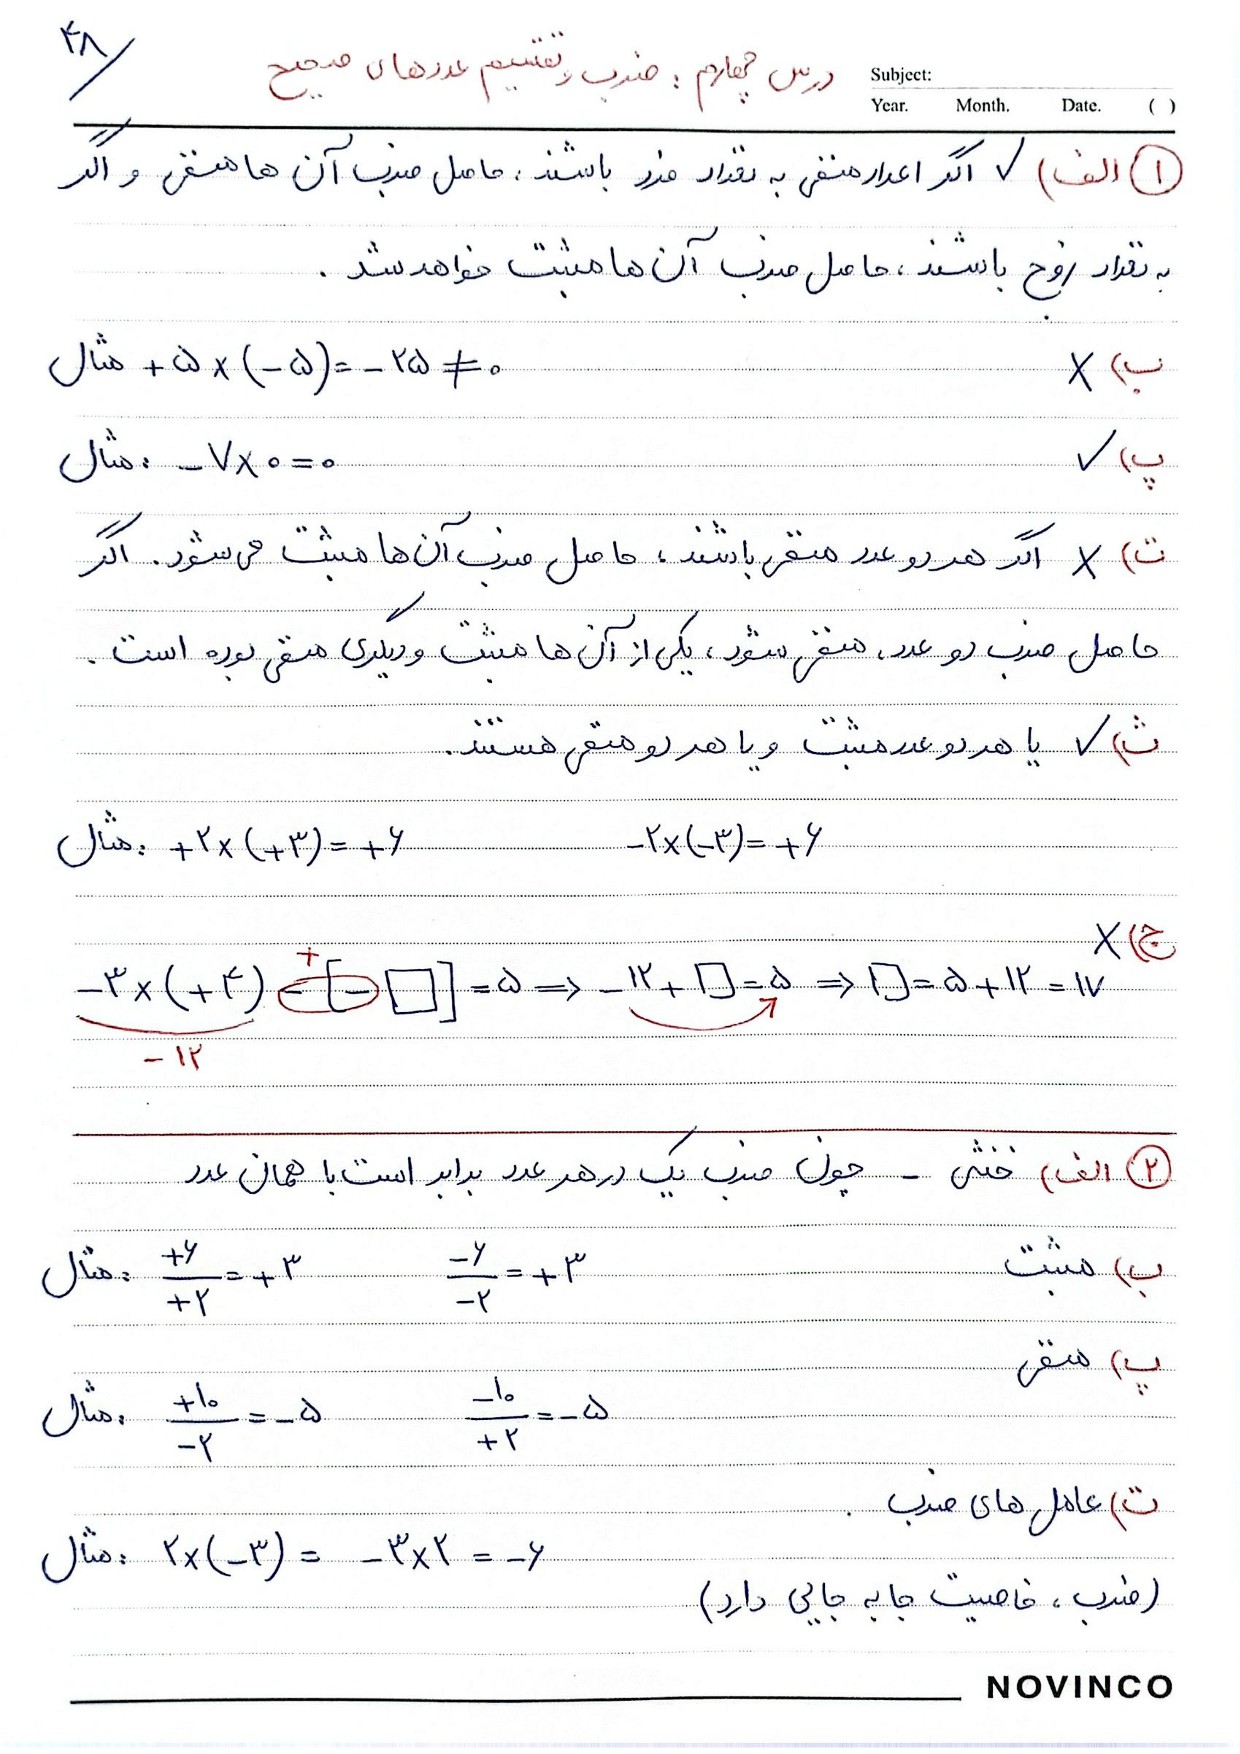 ۴۸
درس چهارم : ضرب و تقسیم عددهای صحیح
Subject:
Year. Month. Date. ( )
۱ الف) ✓ اگر اعداد منفی به تعداد فرد باشند ، حاصل ضرب آن ها منفی و اگر
به تعداد زوج باشند ، حاصل ضرب آن ها مثبت خواهد شد .
ب) X مثال + ۵ × (- ۵) = - ۲۵ ≠ ۰
پ) ✓ مثال: - ۷ × ۰ = ۰
ت) X اگر هر دو عدد منفی باشند ، حاصل ضرب آن ها مثبت می شود . اگر
حاصل ضرب دو عدد ، منفی شود ، یکی از آن ها مثبت و دیگری منفی بوده است .
ث) ✓ یا هر دو عدد مثبت و یا هر دو منفی هستند .
مثال: +۲ × (+۳) = +۶ -۲ × (-۳) = +۶
ج) X
+
-۳ × (+۴) - [- □] = ۵ ⇒ -۱۲ + □ = ۵ ⇒ □ = ۵ + ۱۲ = ۱۷
- ۱۲
۲ الف) خنثی - چون ضرب یک در هر عدد برابر است با همان عدد
ب) مثبت مثال: +۶/+۲ = +۳ -۶/-۲ = +۳
پ) منفی
مثال: +۱۰/-۲ = -۵ -۱۰/+۲ = -۵
ت) عامل های ضرب
مثال: ۲ × (-۳) = -۳ × ۲ = -۶
(ضرب ، خاصیت جا به جایی دارد)
NOVINCO